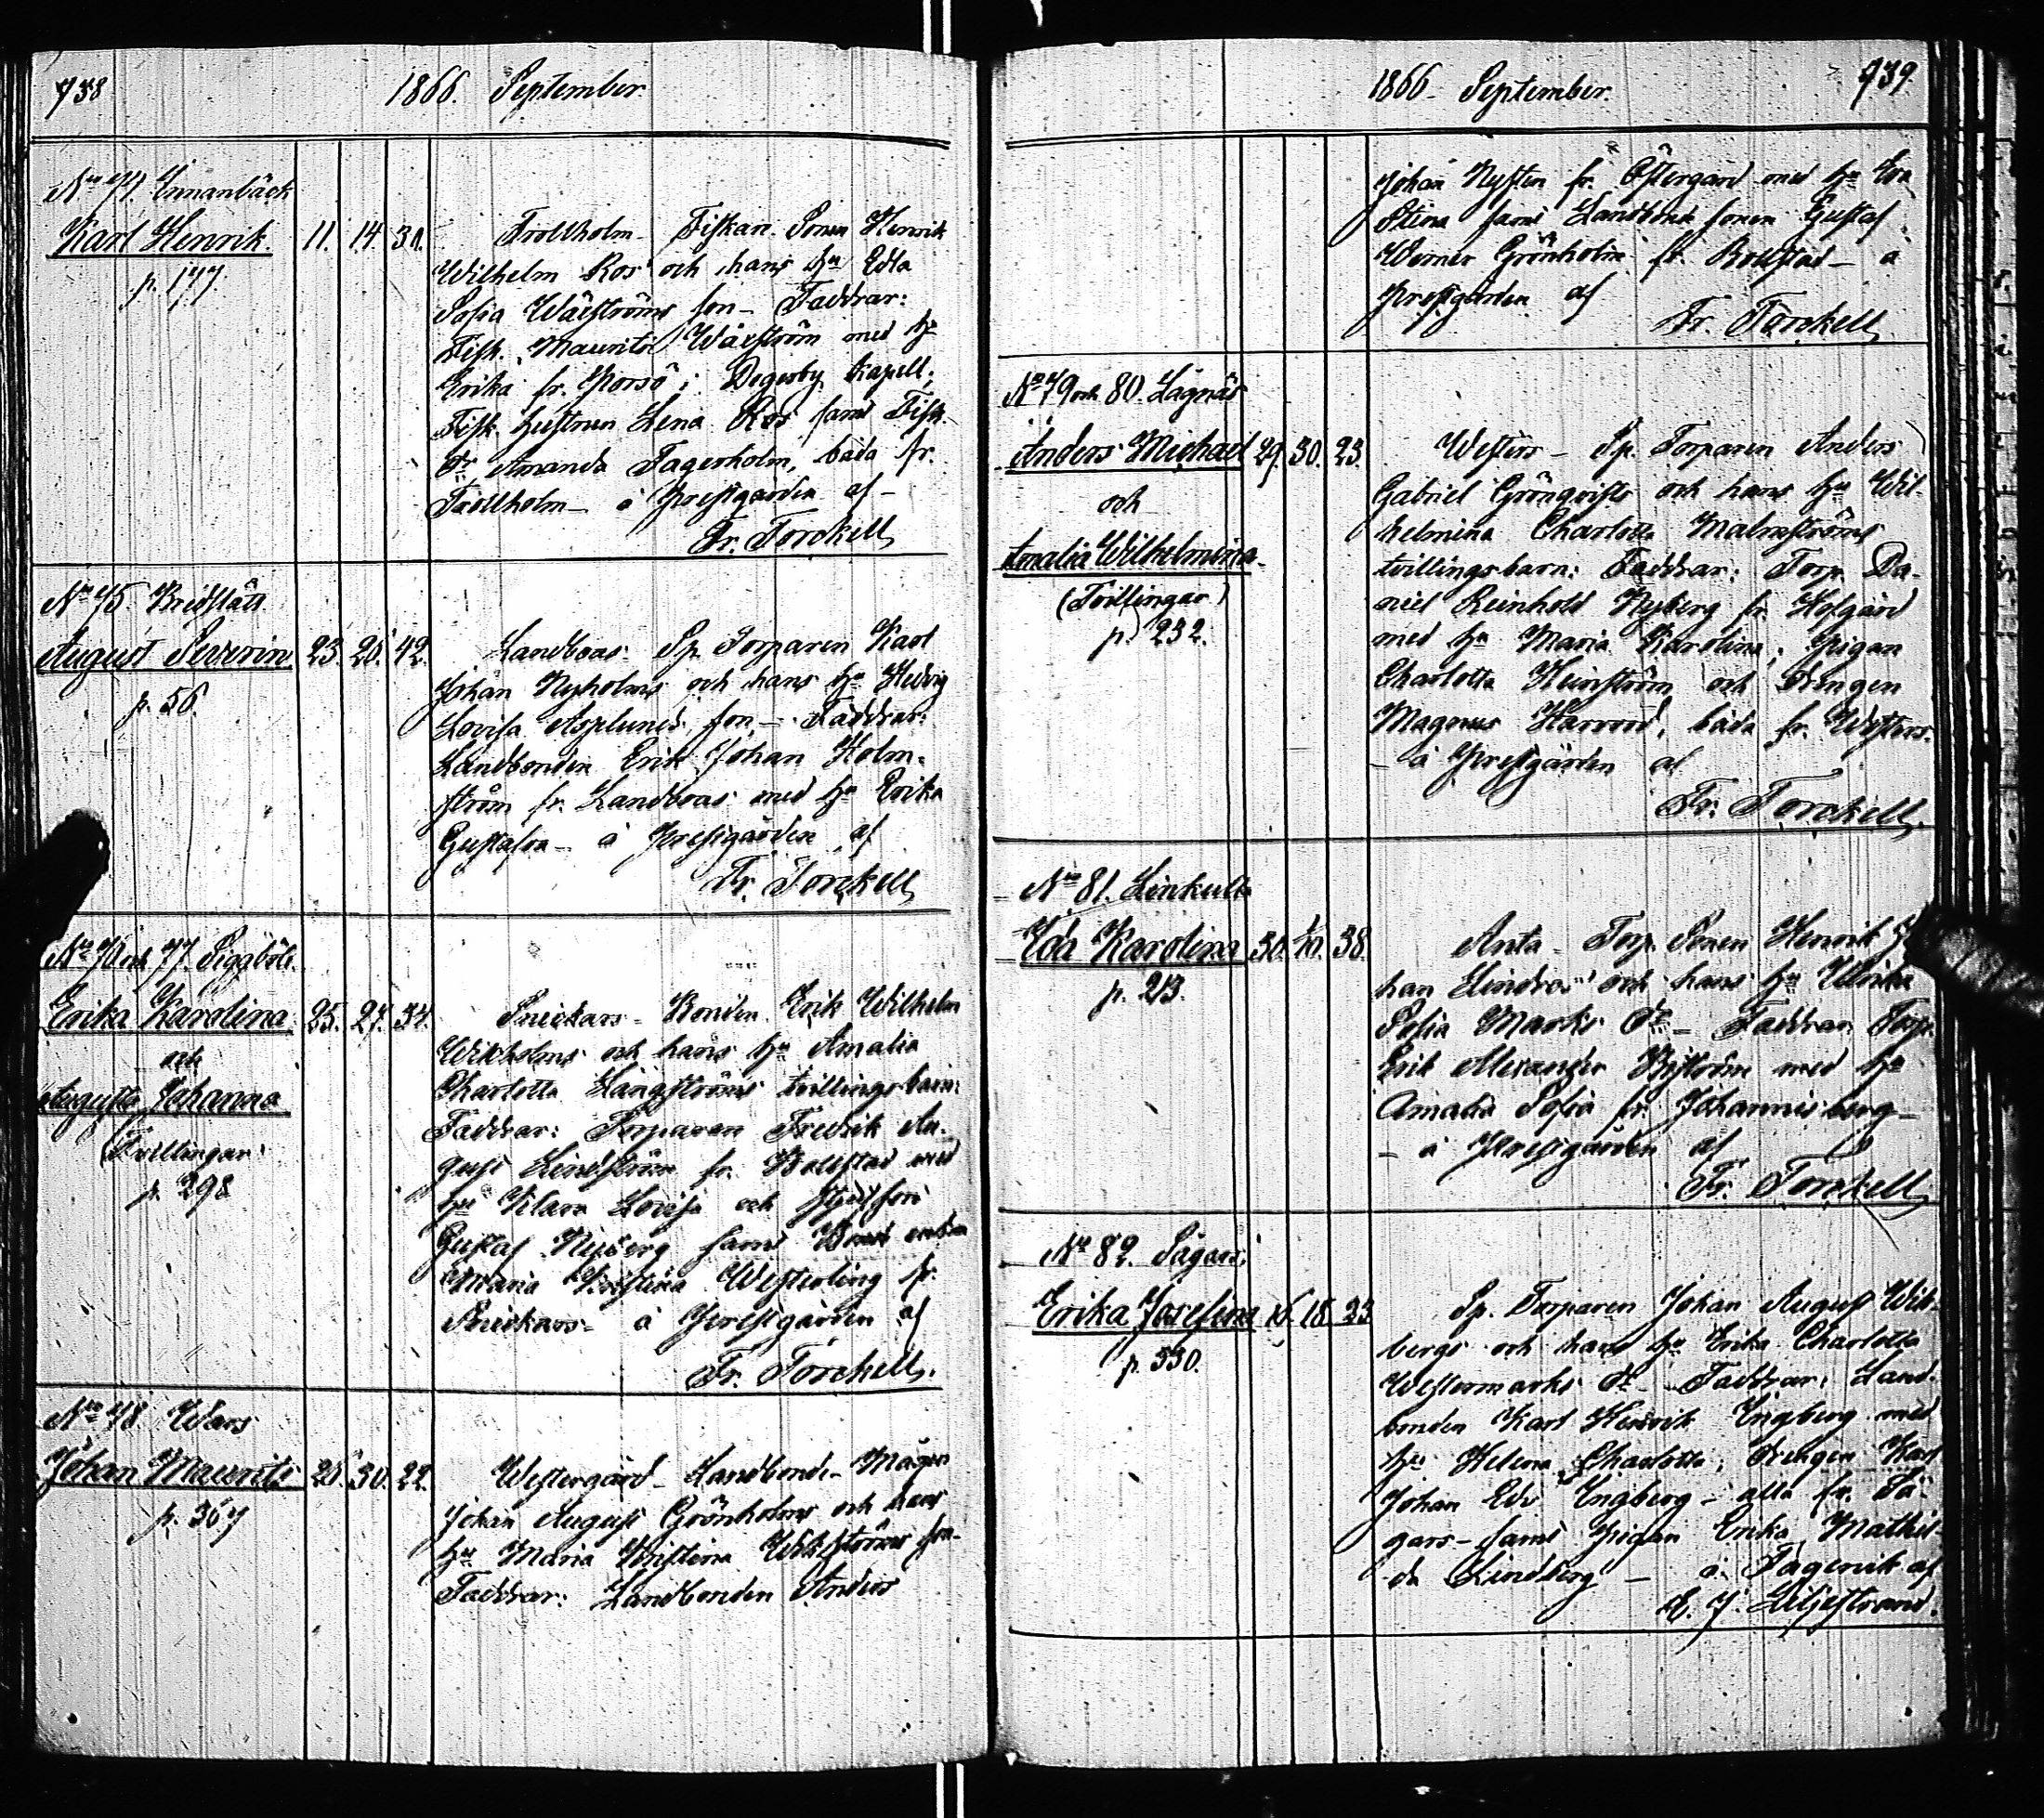 738
1866. September.
No 74. Innanbäck
Karl Henrik. 11. 14. 31.
p. 177.
Trollholm - Fiskare Sonen Henrik
Wilhelm Ros och hans hu Edla
Sofia Wäxströms son - Faddrar:
Fisk. Mauritz Wäxström med hu
Erika fr. Porsö i Degerby kapell;
Fisk. hustrun Lena Ros samt Fisk.
Dr Amanda Fagerholm, båda fr.
Trollholm - å Prestgården af -
Fr. Torckell
No 75.
August Severin 23. 26. 42.
p. 56.
Landboas. Sp. Torparen Karl
Johan Nyholms och hans hu Hedvig
Lovisa Asplunds son, - Faddrar:
Landbonden Erik Johan Holm-
ström fr. Landboas med hu Erika
Gustafva - å Prestgården af
Fr. Torckell
No 76 och 77. Siggböle.
Erika Karolina 25. 27. 34.
och
Augusta Johanna
(Tvillingar)
p. 298
Snickars - Bonden Erik Wilhelm
Wikholms och hans hu Amalia
Charlotta Långströms tvillingsbarn:
Faddrar: Torparen Fredrik Au-
gust Lindström fr. Bollstad med
hu Klara Lovisa och
Gustaf Nyberg samt enkan
Maria Kristina Westerling fr.
Snickars - å Prestgården af
Fr. Torckell.
No 78 Wars
Johan Mauritz 26. 30. 22.
p. 367
Westergård - Landbonde Mågen
Johan August Grönholms och hans
hu Maria Kristina Wikströms son -
Faddrar: Landbonden Anders
1866 - September. 739.
Johan Nysten fr. Östergård med hu Eva
Stina samt Landbonde sonen Gustaf
Werner Grönholm fr. Bollstad - å
Prestgården af
Fr. Torckell
No 79 och 80. Lågnäs
Anders Michael 29. 30. 23.
och
Amalia Wilhelmina.
(Tvillingar)
p. 232.
Westers - Sp. Torparen Anders
Gabriel Grönqvists och hans hu Wil-
helmina Charlotta Malmströms
tvillingsbarn: Faddrar: Torp. Da-
niel Reinhold Nyberg fr. Hofgård
med hu Maria Karolina; Pigan
Charlotta Heinström och Drengen
Magnus båda fr. Westers.
- å Prestgården af
Fr. Torckell
No 81. Linkulla
Eda Karolina 30. 38.
p. 213.
Anta - Torp. Sonen Henrik Jo-
han Lindros' och hans hu Ulrika
Sofia Marks Dr - Faddrar: Torp.
Erik Alexander Byström med hu
Amalia Sofia fr. Johannisberg -
- å Prestgården af
Fr. Torckell
No 82. Sågars.
Erika Josefina 16. 18. 23
p. 330.
Sp. Torparen Johan August Wik-
bergs och hans hu Erika Charlotta
Westermarks Dr - Faddrar: Land-
bonden Karl Henrik Ingberg med
hu Helena Charlotta, Drengen Karl
Johan Edv. Ingberg - alla fr. Så-
gars - samt Pigan Erika Mathil-
da Lindberg - å Fagervik af
E. J. Liljestrand.